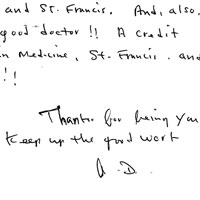 and St. Francis. And, also,
good doctor!! A credit
in Medicine, St. Francis. and
!!
Thanks for being you
Keep up the good work
A.D.